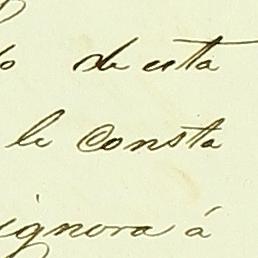 de esta
le consta
ignora á